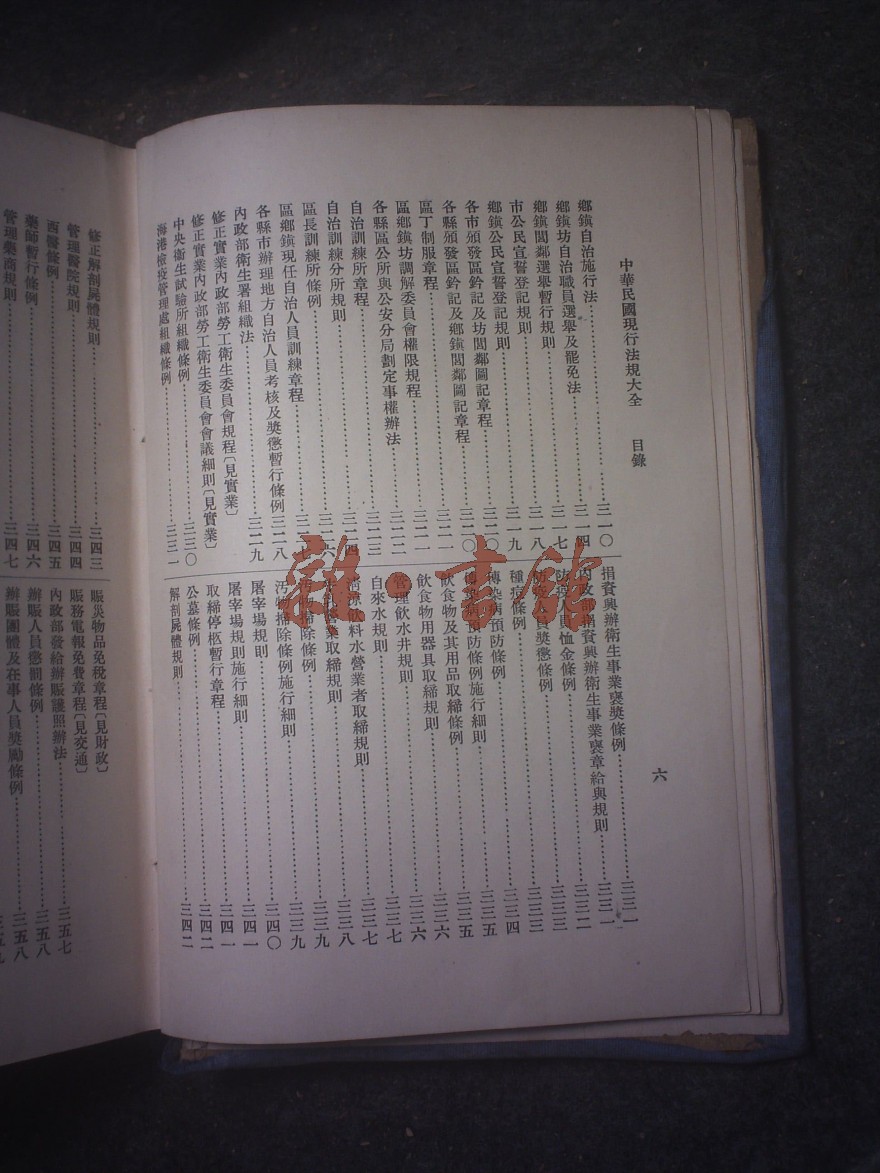 中華民國現行法規大全　目錄　六
鄉鎮自治施行法……三一〇
鄉鎮坊自治職員選舉及罷免法……三一四
鄉鎮閭鄰選舉暫行規則……三一七
市公民宣誓登記規則……三一八
鄉鎮公民宣誓登記規則……三一九
各市頒發區鈐記及坊閭鄰圖記章程……三二〇
各縣頒發區鈐記及鄉鎮閭鄰圖記章程……三二〇
區丁制服章程……三二一
區鄉鎮坊調解委員會權限規程……三二一
各縣區公所與公安分局劃定事權辦法……三二二
自治訓練所章程……三二三
自治訓練分所規則……三二四
區長訓練所條例……三二六
區鄉鎮現任自治人員訓練章程……三二七
各縣市辦理地方自治人員考核及獎懲暫行條例……三二八
內政部衛生署組織法……三二九
修正實業內政部勞工衛生委員會規程〔見實業〕
修正實業內政部勞工衛生委員會會議細則〔見實業〕
中央衛生試驗所組織條例……三三〇
海港檢疫管理處組織條例……三三一
捐資興辦衛生事業褒獎條例……三三一
內政部捐資興辦衛生事業褒章給與規則……三三一
防疫人員恤金條例……三三二
防疫人員獎懲條例……三三三
種痘條例……三三四
傳染病預防條例……三三五
傳染病預防條例施行細則……三三五
飲食物及其用品取締條例……三三六
飲食物用器具取締規則……三三六
管理飲水井規則……三三七
自來水規則……三三七
清涼飲料水營業者取締規則……三三八
營業取締規則……三三九
汚物掃除條例……三三九
汚物掃除條例施行細則……三四〇
屠宰場規則……三四一
屠宰場規則施行細則……三四一
取締停柩暫行章程……三四二
公墓條例……三四二
解剖屍體規則
修正解剖屍體規則……三四三
管理醫院規則……三四四
西醫條例……三四五
藥師暫行條例……三四六
管理藥商規則……三四七
賑災物品免稅章程〔見財政〕
賑務電報免費章程〔見交通〕
內政部發給辦賑護照辦法……三五七
辦賑人員懲罰條例……三五八
辦賑團體及在事人員獎勵條例……三五八
三五九
雜·書館